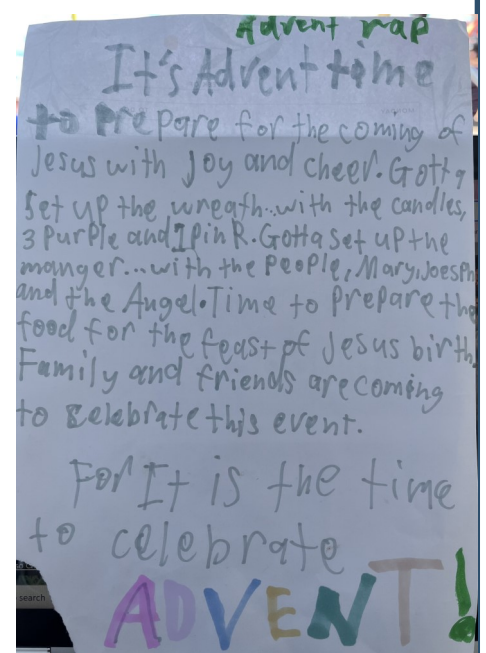 Advent rap
It's Advent time
to prepare for the coming of
Jesus with joy and cheer. Gotta
set up the wreath...with the candles,
3 Purple and 1 PinR. Gotta set up the
manger...with the People, Mary, Joesph
and the Angel. Time to prepare the
food for the feast of Jesus birth.
Family and friends are coming
to celebrate this event.
For It is the time
to celebrate
ADVENT!
search